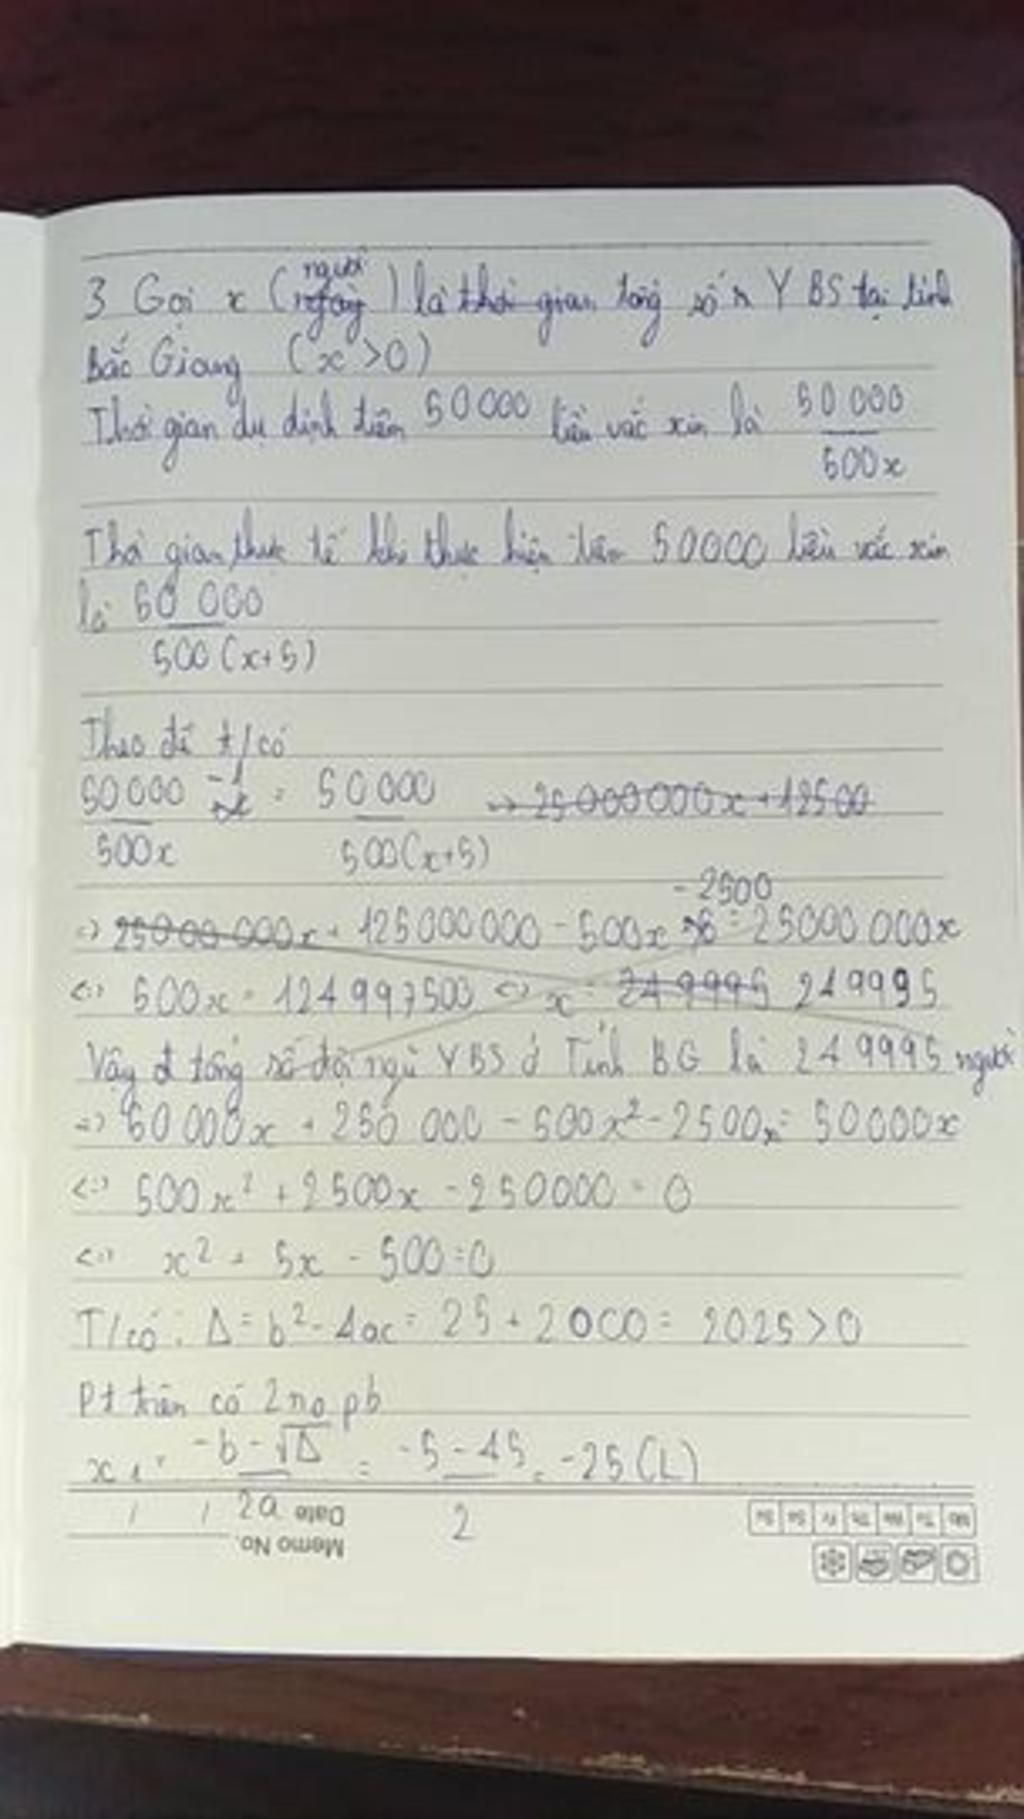 3 Gọi x (người ngày) là thời gian tổng số Y BS tại tỉnh
Bắc Giang (x >0)
Thời gian dự định tiêm 50000 liều vắc xin là 50 000
500x
Thời gian thực tế khi thực hiện tiêm 50000 liều vắc xin
là 50 000
500 (x+5)
Theo đề t/có
50000 -1 = 50 000 => 25000 000x + 12500
500x 500(x+5)
- 2500
=> 25000 000x + 125000000 - 500x = 25000 000x
<=> 500x = 124997500 <=> x = 249995 249995
Vậy tổng số đội ngũ YBS ở Tỉnh BG là 249995 người
=> 50 000x + 250 000 - 500x² - 2500x = 50000x
<=> 500x² + 2500x - 250000 = 0
<=> x² + 5x - 500 = 0
T/có : Δ = b² - 4ac = 25 + 2000 = 2025 > 0
Pt trên có 2 no pb
x1 = -b - √Δ = -5 - 45 = -25 (L)
2a 2
Date / /
Memo No.
Mo Tu We Th Fr Sa Su